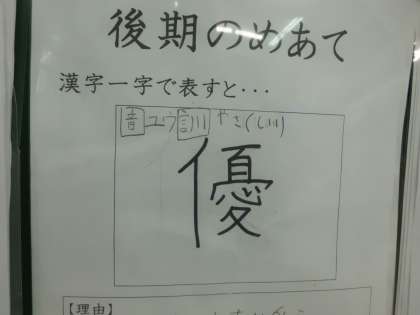 後期のめあて
漢字一字で表すと・・・
音ユウ訓やさ(しい)
優
【理由】